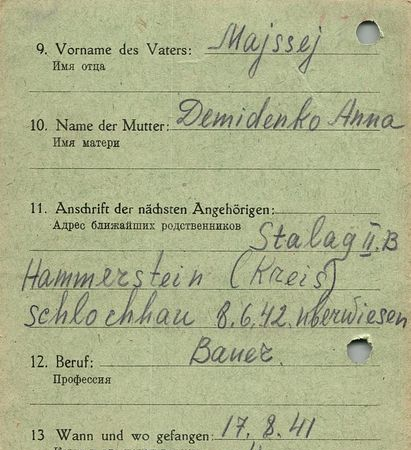 9. Vorname des Vaters: Majssej
Имя отца
10. Name der Mutter: Demidenko Anna
Имя матери
11. Anschrift der nächsten Angehörigen:
Адрес ближайших родственников Stalag II.B
Hammerstein (Kreis)
Schlochhau 8.6.42. überwiesen
12. Beruf: Bauer.
Профессия
13 Wann und wo gefangen: 17.8.41